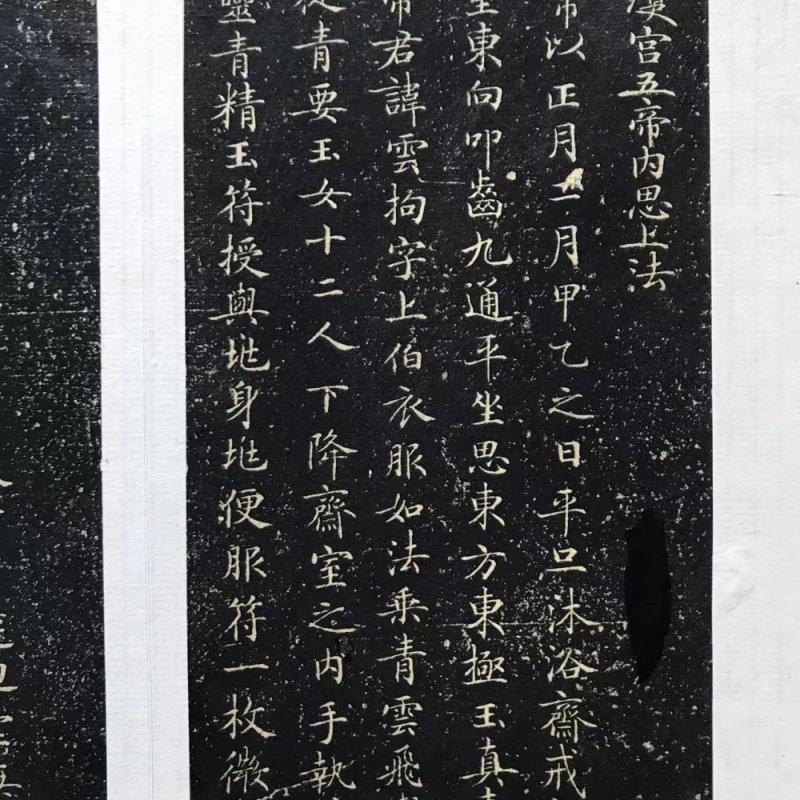 漢宫五帝内思上法
帝以正月二月甲乙之日平旦沐浴齋戒
室東向叩齒九通平坐思東方東極玉真青
帝君諱雲拘字上伯衣服如法乘青雲飛
從青要玉女十二人下降齋室之内手執
靈青精玉符授與地身地便服符一枚微